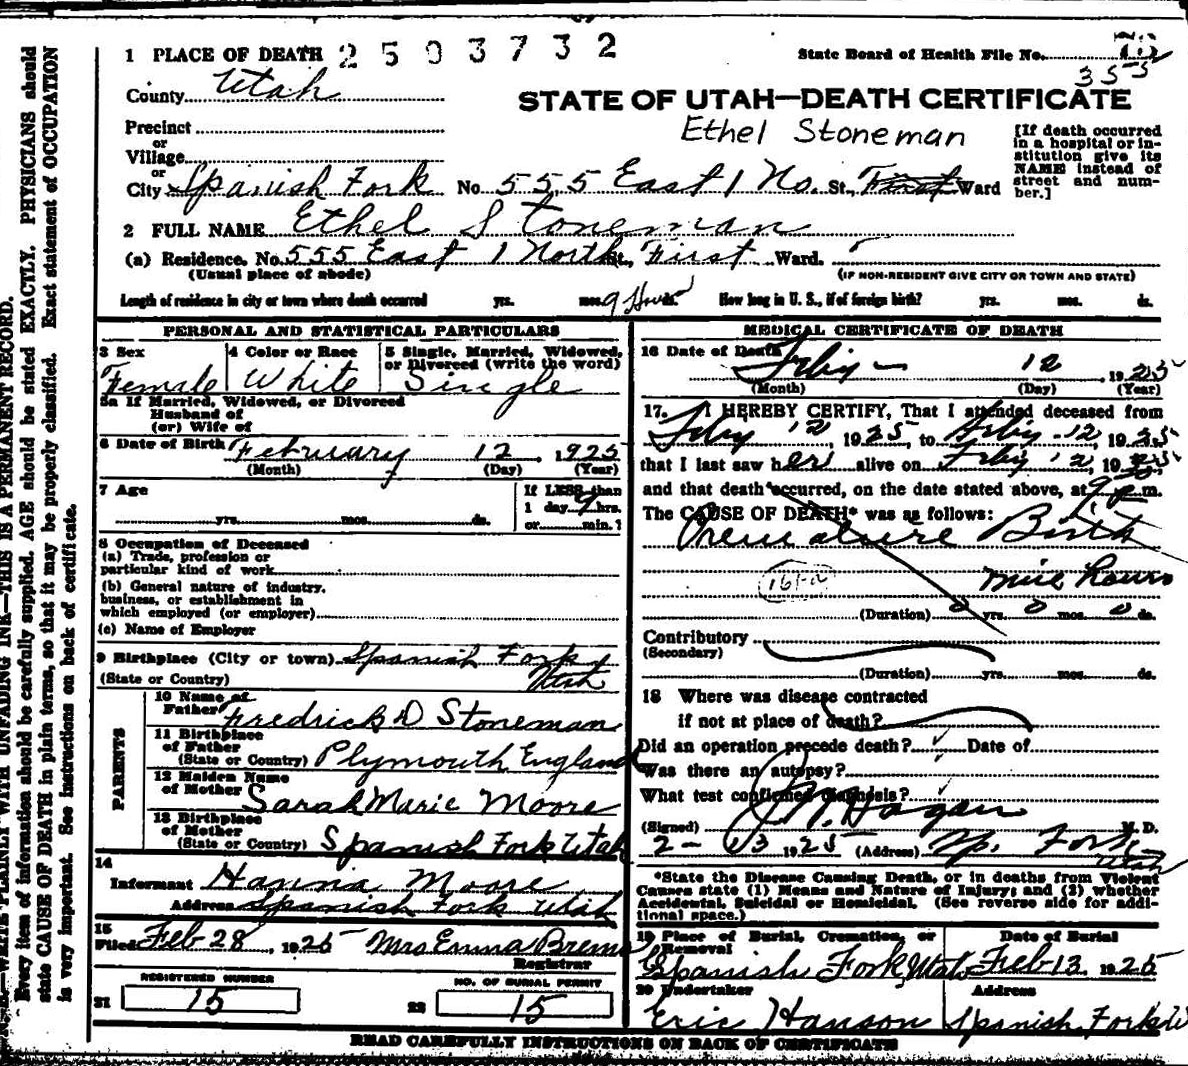 1 PLACE OF DEATH 2593732
State Board of Health File No.
355
County Utah
STATE OF UTAH—DEATH CERTIFICATE
Precinct
Ethel Stoneman
or
Village
or
City Spanish Fork No. 555 East 1 No. St., First Ward
[If death occurred
in a hospital or in-
stitution give its
NAME instead of
street and num-
ber.]
2 FULL NAME Ethel Stoneman
(a) Residence. No. 555 East 1 North St., First Ward.
(Usual place of abode)
(IF NON-RESIDENT GIVE CITY OR TOWN AND STATE)
Length of residence in city or town where death occurred yrs. mos. 9 Hours ds. How long in U. S., if of foreign birth? yrs. mos. ds.
PERSONAL AND STATISTICAL PARTICULARS
3 Sex
Female
4 Color or Race
White
5 Single, Married, Widowed,
or Divorced (write the word)
Single
5a If Married, Widowed, or Divorced
Husband of
(or) Wife of
6 Date of Birth February 12, 1925
(Month) (Day) (Year)
7 Age
yrs. mos. ds.
If LESS than
1 day 9 hrs.
or min.?
8 Occupation of Deceased
(a) Trade, profession or
particular kind of work
(b) General nature of industry,
business, or establishment in
which employed (or employer)
(c) Name of Employer
9 Birthplace (City or town) Spanish Fork
(State or Country) Utah
PARENTS
10 Name of
Father Fredrick D Stoneman
11 Birthplace
of Father
(State or Country) Plymouth England
12 Maiden Name
of Mother Sarah Marie Moore
13 Birthplace
of Mother
(State or Country) Spanish Fork Utah
14
Informant Hanna Moore
Address Spanish Fork Utah
15
Filed Feb 28, 1925 Mrs Emma
Registrar
REGISTERED NUMBER
21 15
NO. OF BURIAL PERMIT
22 15
MEDICAL CERTIFICATE OF DEATH
16 Date of Death Feby — 12, 1925
(Month) (Day) (Year)
17. I HEREBY CERTIFY, That I attended deceased from
Feby 12, 1925, to Feby - 12, 1925,
that I last saw her alive on Feby 12, 1925,
and that death occurred, on the date stated above, at 9 p.m.
The CAUSE OF DEATH* was as follows:
Premature Birth
161-a
nine hours
(Duration) 0 yrs. 0 mos. 0 ds.
Contributory
(Secondary)
(Duration) yrs. mos. ds.
18 Where was disease contracted
if not at place of death?
Did an operation precede death? Date of
Was there an autopsy?
What test confirmed diagnosis?
(Signed) J. M. Hagan M. D.
2 - 13 1925 (Address) Sp. Fork Utah
*State the Disease Causing Death, or in deaths from Violent
Causes state (1) Means and Nature of Injury; and (2) whether
Accidental, Suicidal or Homicidal. (See reverse side for addi-
tional space.)
19 Place of Burial, Cremation, or
Removal
Spanish Fork, Utah
Date of Burial
Feb 13. 1925
20 Undertaker
Eric Hanson
Address
Spanish Fork U
READ CAREFULLY INSTRUCTIONS ON BACK OF CERTIFICATE
WRITE PLAINLY WITH UNFADING INK—THIS IS A PERMANENT RECORD.
Every item of information should be carefully supplied. AGE should be stated EXACTLY. PHYSICIANS should
state CAUSE OF DEATH in plain terms, so that it may be properly classified. Exact statement of OCCUPATION
is very important. See instructions on back of certificate.